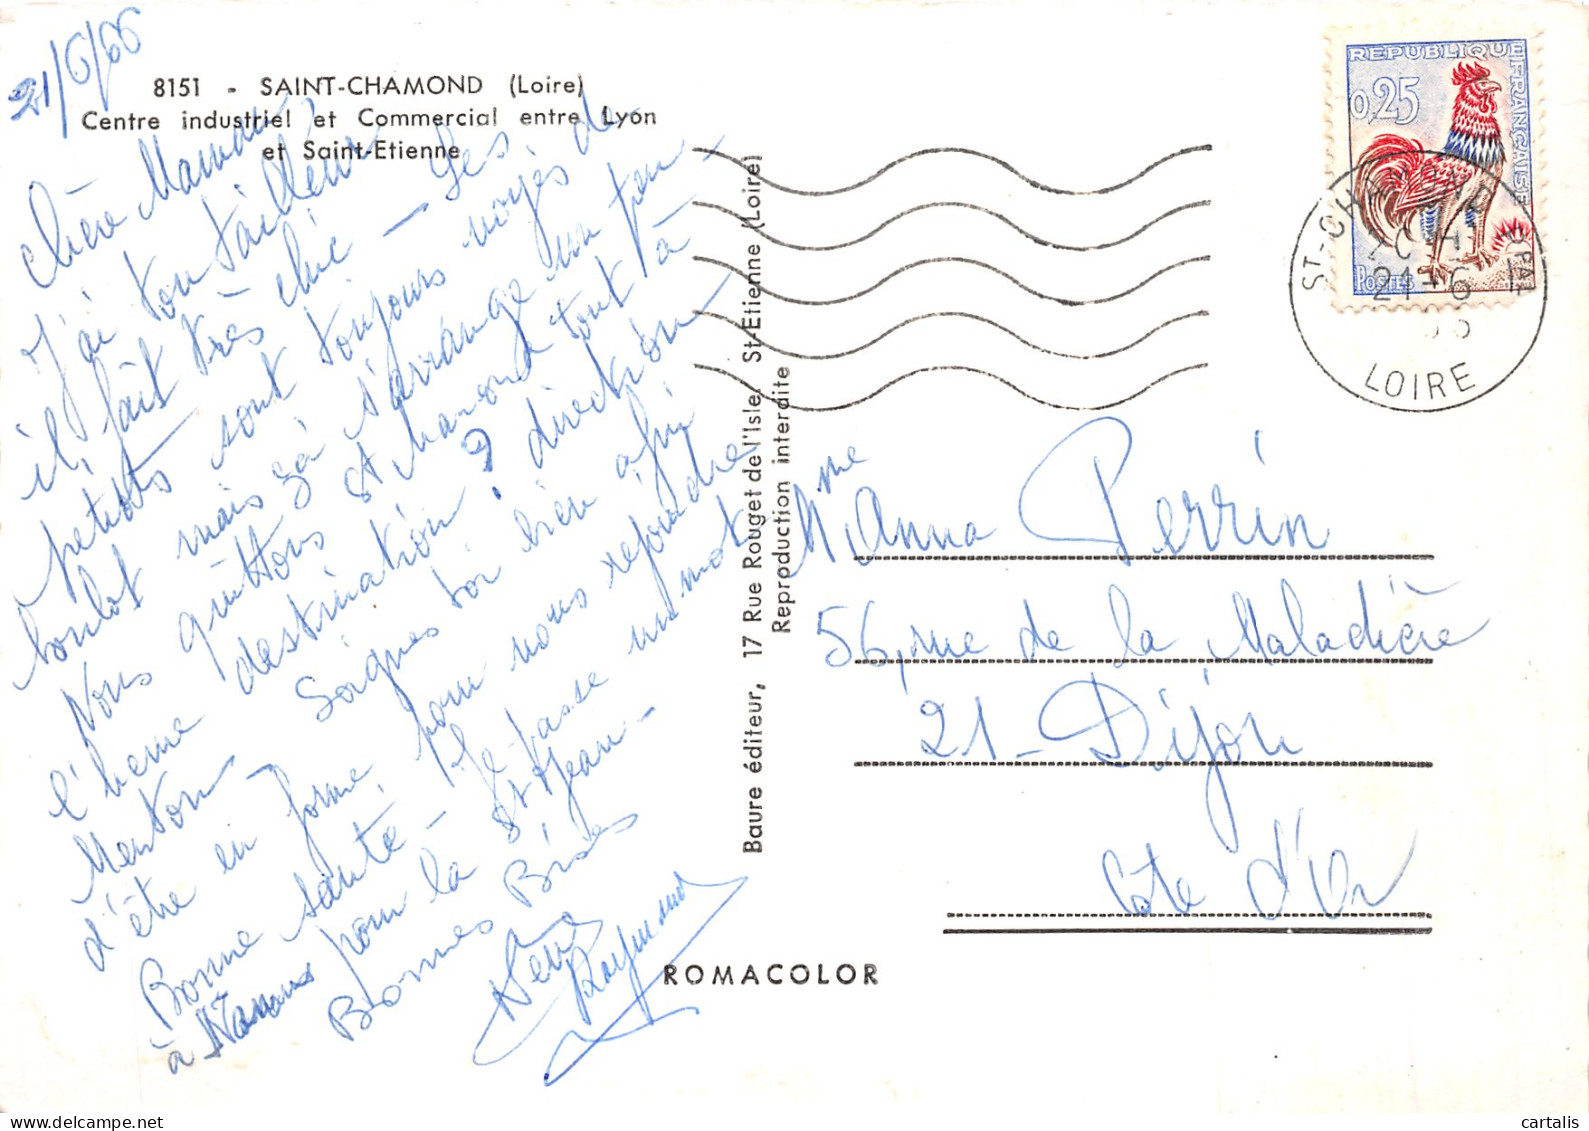 21/6/66
8151 - SAINT-CHAMOND (Loire)
Centre industriel et Commercial entre Lyon
et Saint-Etienne
Chère Maman
J'ai ton tailleur
il fait très chic - Les
petits sont toujours noyés de
boulot mais ça s'arrange un peu -
Nous quittons St Chamond tout à
l'heure destination ? direction
Menton - Soignes toi bien afin
d'être en forme pour nous rejoindre
Bonne santé - Je passe un mot
à pour la St Jean -
Bonnes Bises
Raymond
Baure éditeur, 17 Rue Rouget de l'Isle, St-Etienne (Loire)
Reproduction interdite
ROMACOLOR
REPUBLIQUE FRANÇAISE
0,25
POSTES
ST-CHAMOND PAL
21-6
LOIRE
Mme Anna Perrin
56, rue de la Maladière
21 - Dijon
Côte d'Or
cartalis